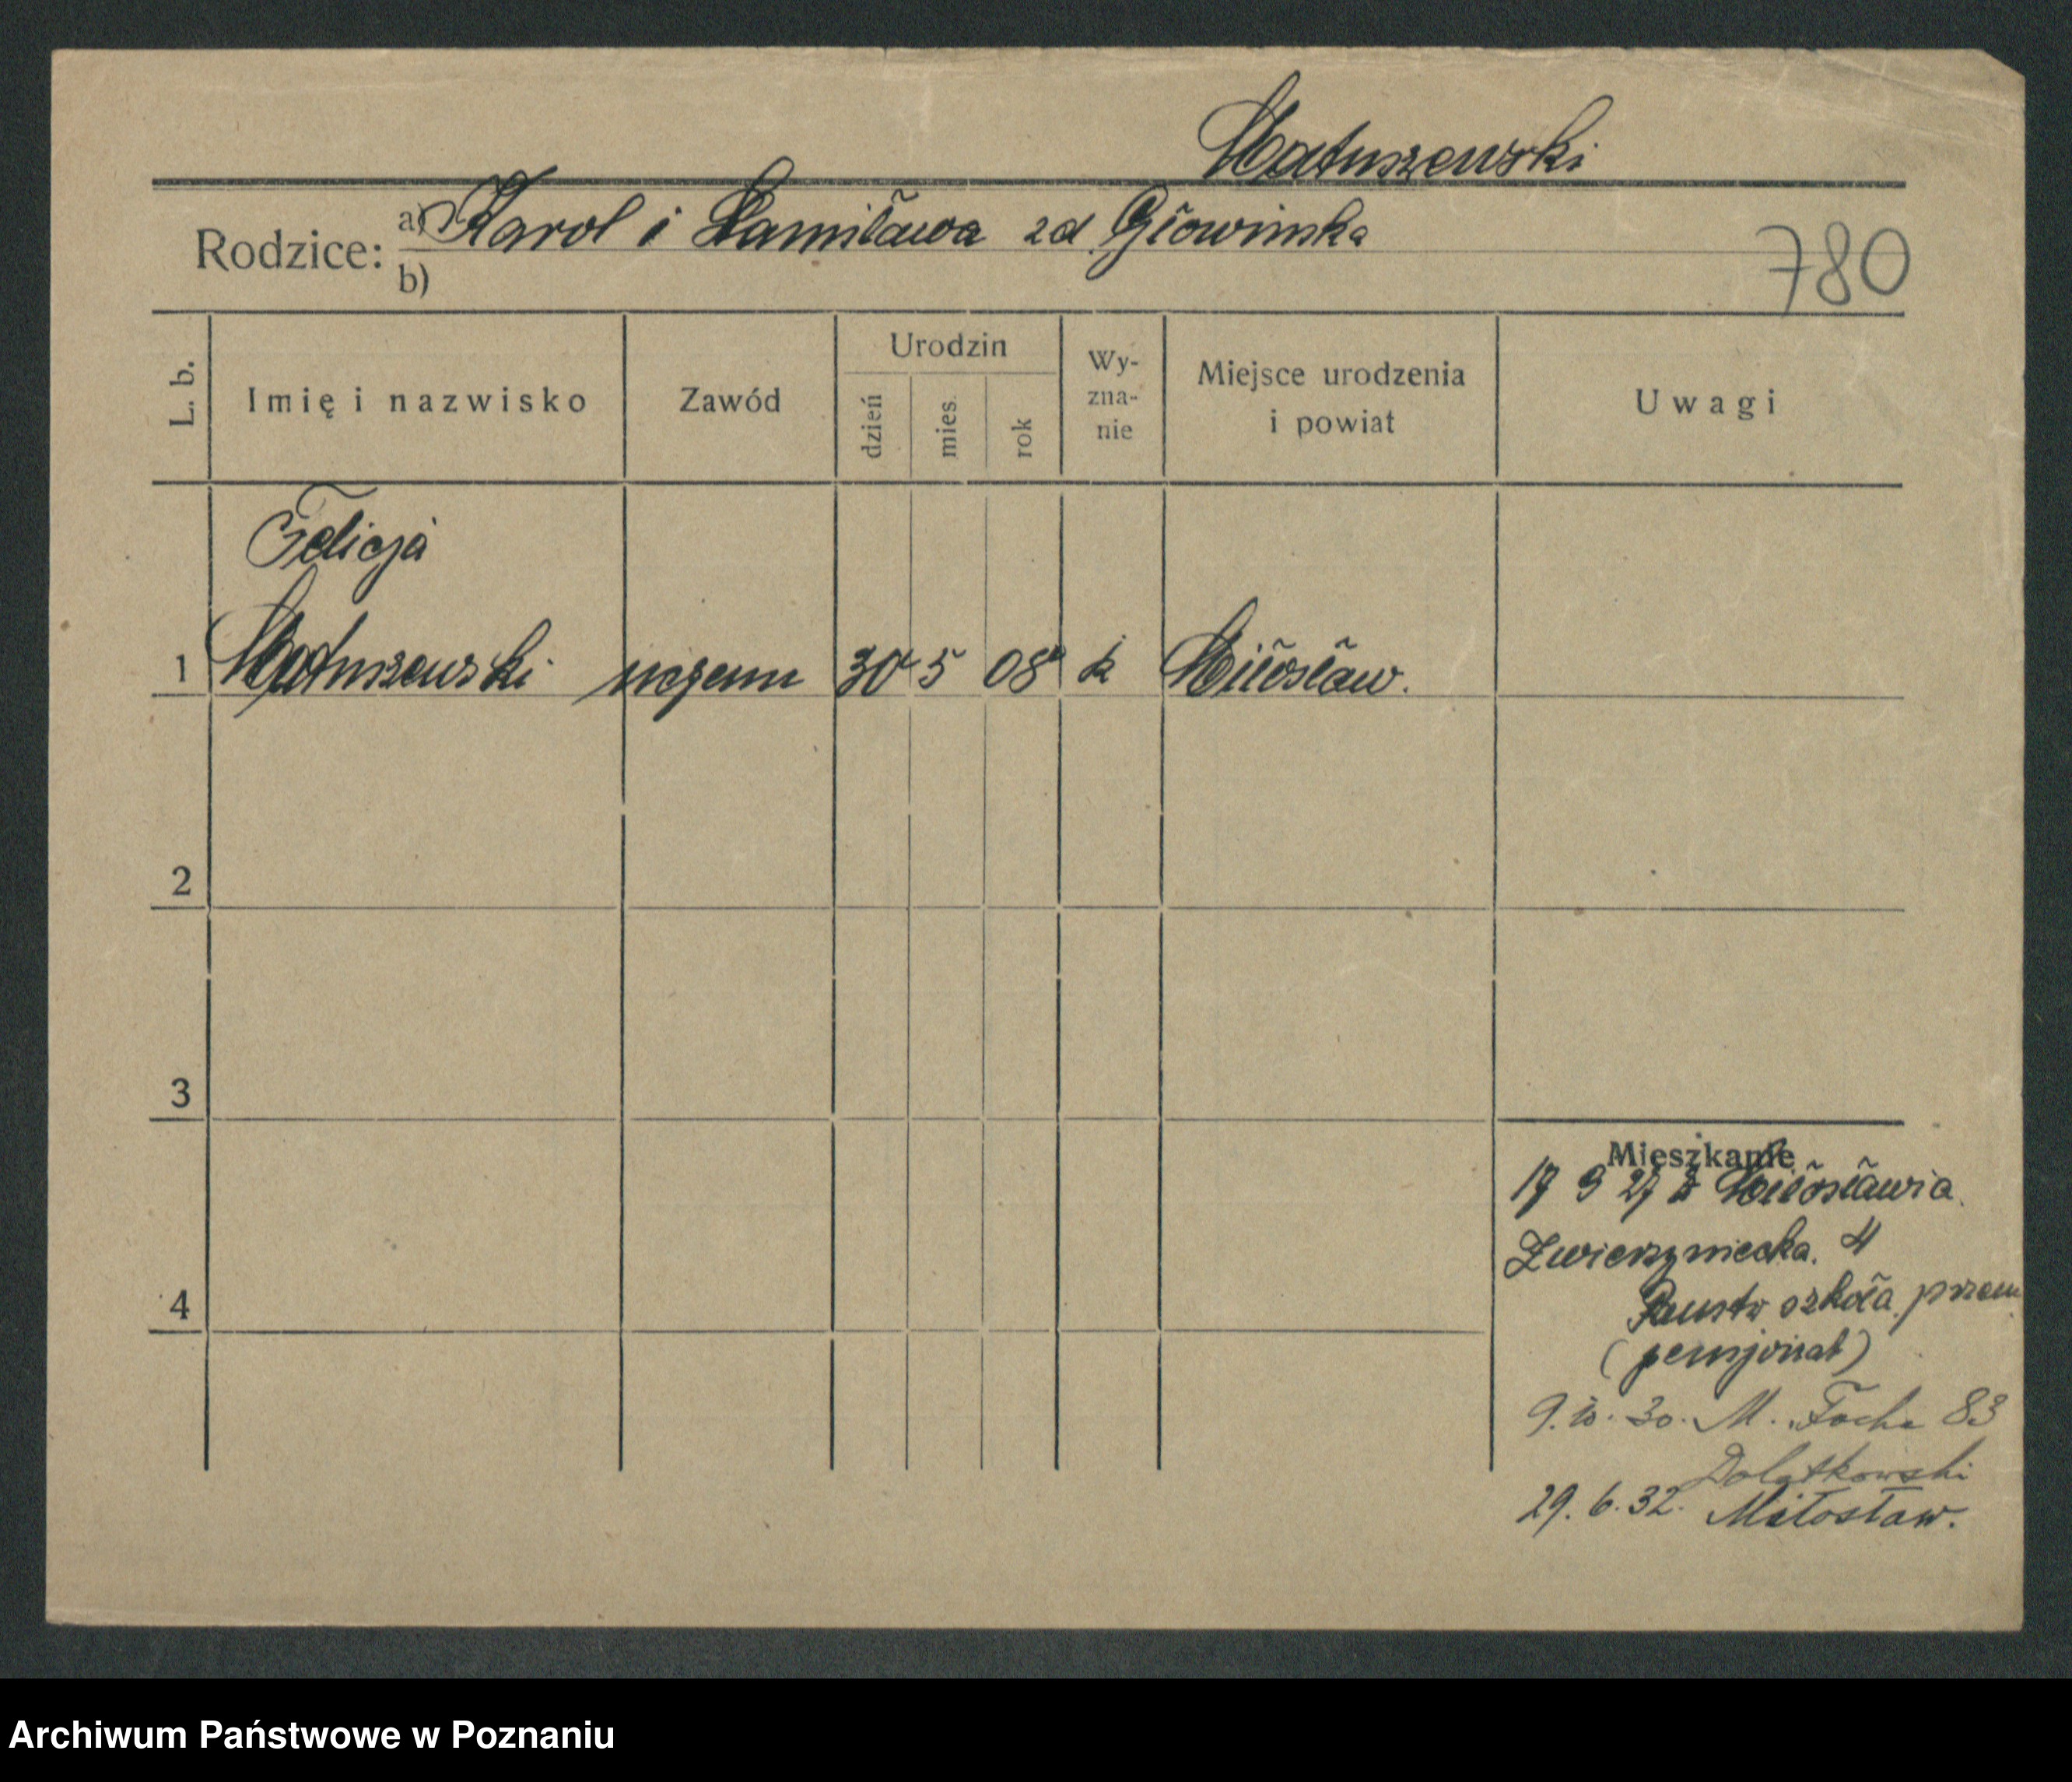 Matuszewski
Rodzice: a) Karol i Stanisława zd Głowinska
b)
780
L. b.
Imię i nazwisko
Zawód
Urodzin
dzień
mies.
rok
Wy-
zna-
nie
Miejsce urodzenia
i powiat
Uwagi
Felicja
1 Matuszewski uczenn 30 5 08 k Miłosław.
2
3
4
Mieszkanie
17 9 27 z Miłosławia
Zwierzyniecka. 4
Panstw szkoła przem
(pensjonat)
9. 10. 30. M. Focha 83
Dolatkowski
29. 6. 32. Miłosław.
Archiwum Państwowe w Poznaniu